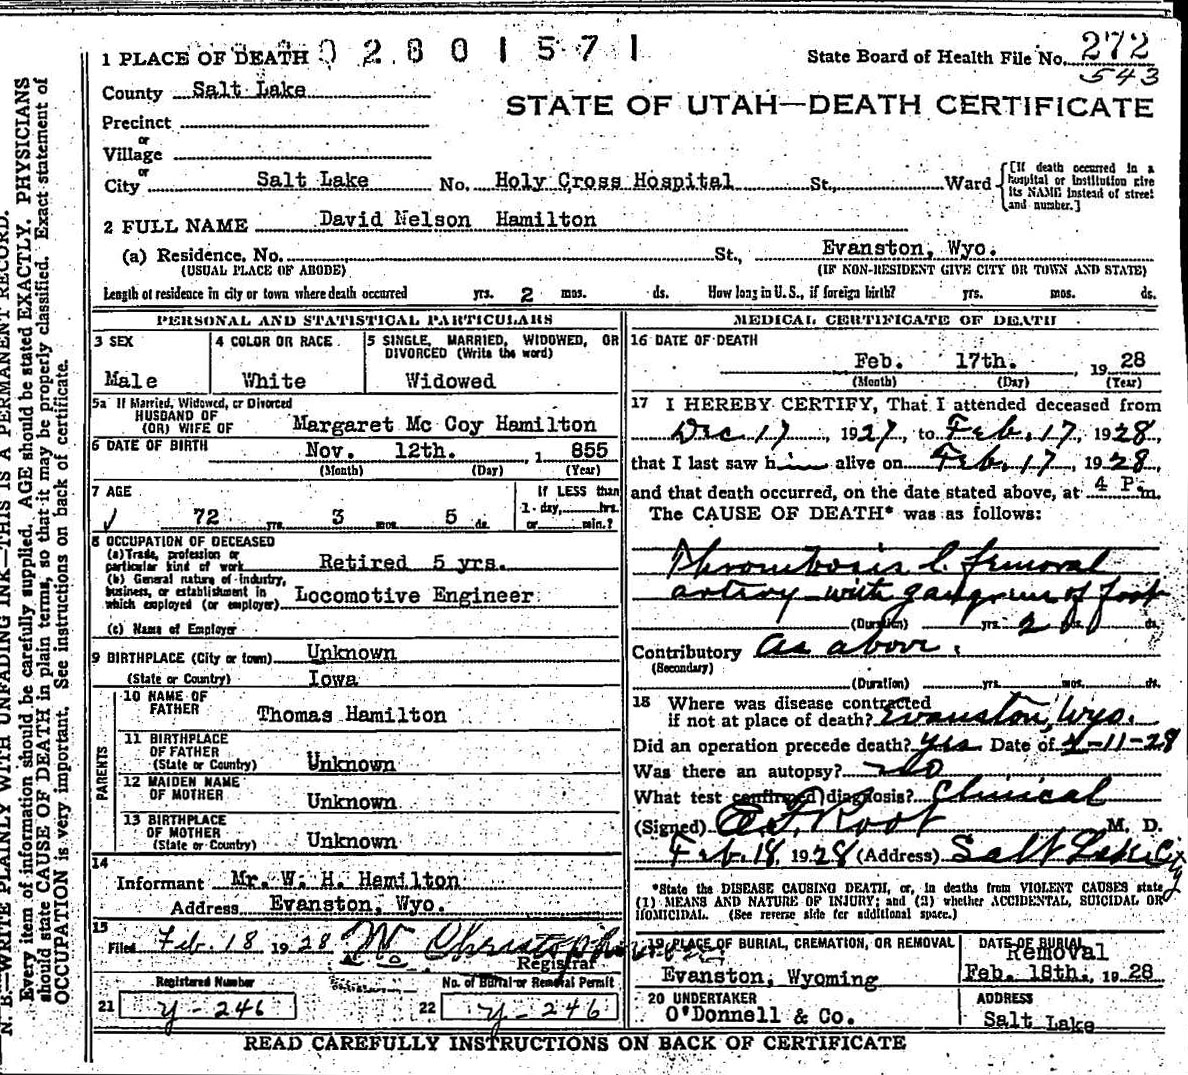 N. B.—WRITE PLAINLY WITH UNFADING INK—THIS IS A PERMANENT RECORD.
Every item of information should be carefully supplied. AGE should be stated EXACTLY. PHYSICIANS
should state CAUSE OF DEATH in plain terms, so that it may be properly classified. Exact statement of
OCCUPATION is very important. See instructions on back of certificate.
1 PLACE OF DEATH 0 2 8 0 1 5 7 1
State Board of Health File No. 272
543
County Salt Lake
STATE OF UTAH—DEATH CERTIFICATE
Precinct
or
Village
or
City Salt Lake No. Holy Cross Hospital St., Ward
[If death occurred in a
hospital or institution give
its NAME instead of street
and number.]
2 FULL NAME David Nelson Hamilton
(a) Residence. No. St., Evanston, Wyo.
(USUAL PLACE OF ABODE) (IF NON-RESIDENT GIVE CITY OR TOWN AND STATE)
Length of residence in city or town where death occurred yrs. 2 mos. ds. How long in U.S., if foreign birth? yrs. mos. ds.
PERSONAL AND STATISTICAL PARTICULARS
3 SEX
Male
4 COLOR OR RACE
White
5 SINGLE, MARRIED, WIDOWED, OR
DIVORCED (Write the word)
Widowed
5a If Married, Widowed, or Divorced
HUSBAND OF
(OR) WIFE OF Margaret Mc Coy Hamilton
6 DATE OF BIRTH Nov. 12th. 1 855
(Month) (Day) (Year)
7 AGE
72 yrs. 3 mos. 5 ds.
If LESS than
1 day, hrs.
or min.?
8 OCCUPATION OF DECEASED
(a) Trade, profession or
particular kind of work Retired 5 yrs.
(b) General nature of industry,
business, or establishment in
which employed (or employer) Locomotive Engineer
(c) Name of Employer
9 BIRTHPLACE (City or town) Unknown
(State or Country) Iowa
PARENTS
10 NAME OF
FATHER Thomas Hamilton
11 BIRTHPLACE
OF FATHER
(State or Country) Unknown
12 MAIDEN NAME
OF MOTHER Unknown
13 BIRTHPLACE
OF MOTHER
(State or Country) Unknown
14
Informant Mr. W. H. Hamilton
Address Evanston, Wyo.
15
Filed Feb. 18 1928
Registrar
Registered Number
21 y-246
No. of Burial or Removal Permit
22 y-246
MEDICAL CERTIFICATE OF DEATH
16 DATE OF DEATH
Feb. 17th. 1928
(Month) (Day) (Year)
17 I HEREBY CERTIFY, That I attended deceased from
Dec 17, 1927, to Feb. 17, 1928,
that I last saw him alive on Feb. 17, 1928,
and that death occurred, on the date stated above, at 4 P.m.
The CAUSE OF DEATH* was as follows:
Thrombosis l. femoral
artery with gangrene of foot
(Duration) yrs. 2 ds.
Contributory As above.
(Secondary)
(Duration) yrs. mos. ds.
18 Where was disease contracted
if not at place of death? Evanston, Wyo.
Did an operation precede death? yes Date of 2-11-28
Was there an autopsy? no
What test confirmed diagnosis? Clinical
(Signed) E. F. Root M. D.
Feb. 18, 1928 (Address) Salt Lake City
*State the DISEASE CAUSING DEATH, or, in deaths from VIOLENT CAUSES state
(1) MEANS AND NATURE OF INJURY; and (2) whether ACCIDENTAL, SUICIDAL OR
HOMICIDAL. (See reverse side for additional space.)
19 PLACE OF BURIAL, CREMATION, OR REMOVAL
Evanston, Wyoming
DATE OF BURIAL
Removal
Feb. 18th. 1928
20 UNDERTAKER
O'Donnell & Co.
ADDRESS
Salt Lake
READ CAREFULLY INSTRUCTIONS ON BACK OF CERTIFICATE